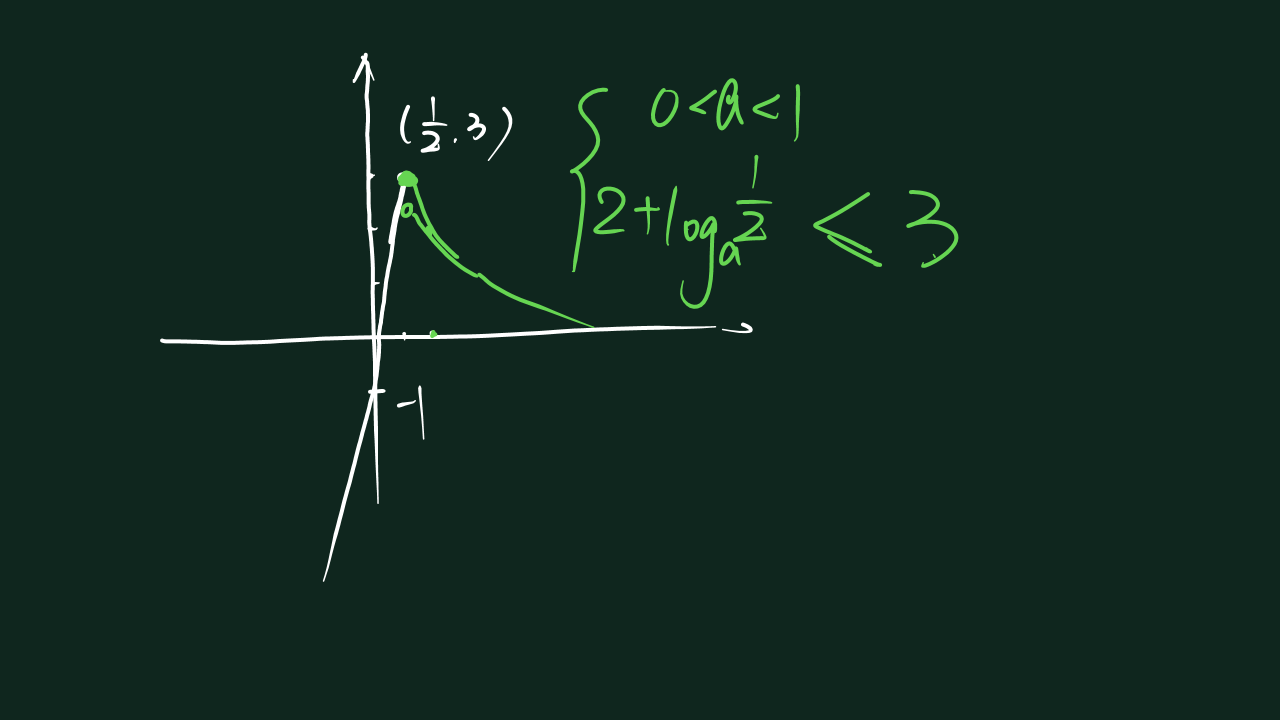 (1/2 . 3)
{ 0 < a < 1
2 + log_a 1/2 ≤ 3
-1